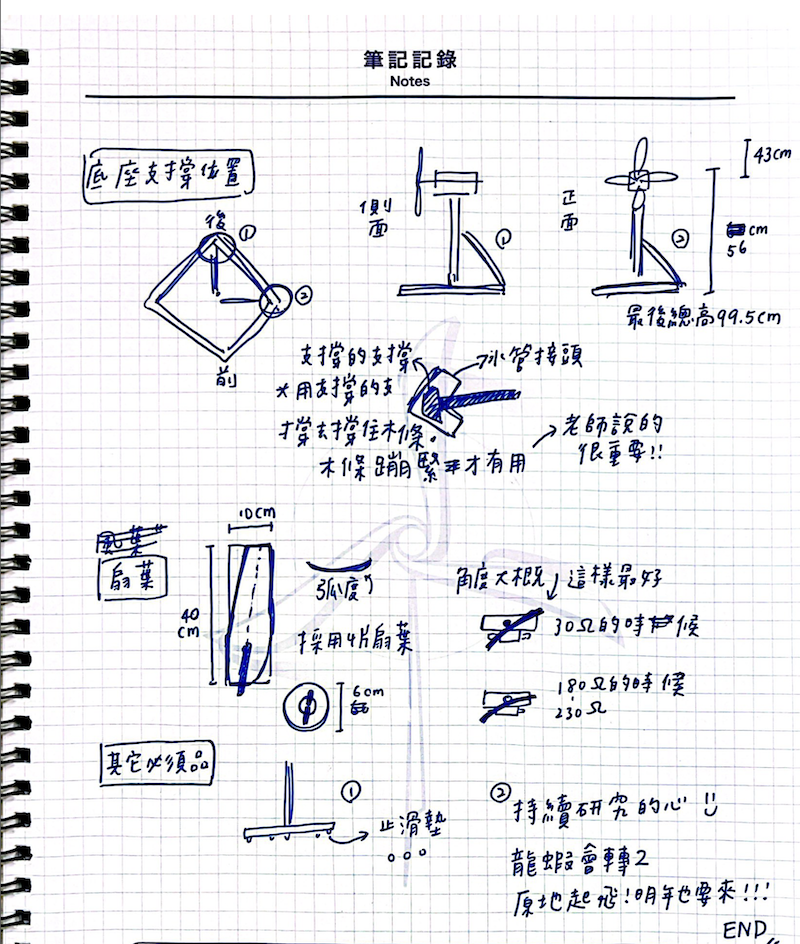 筆記記錄
Notes
底座支撐位置
後
①
②
前
側面
①
正面
②
43cm
cm
56
最後總高99.5cm
支撐的支撐
水管接頭
*用支撐的支
撐去撐住木條。
木條蹦緊才有用
老師說的
很重要!!
風葉
扇葉
10cm
40
cm
弧度
採用4片扇葉
6cm
角度大概
這樣最好
30Ω的時候
180Ω的時候
230Ω
其它必須品
①
止滑墊
②
持續研究的心
龍蝦會轉2
原地起飛!明年也要來!!!
END